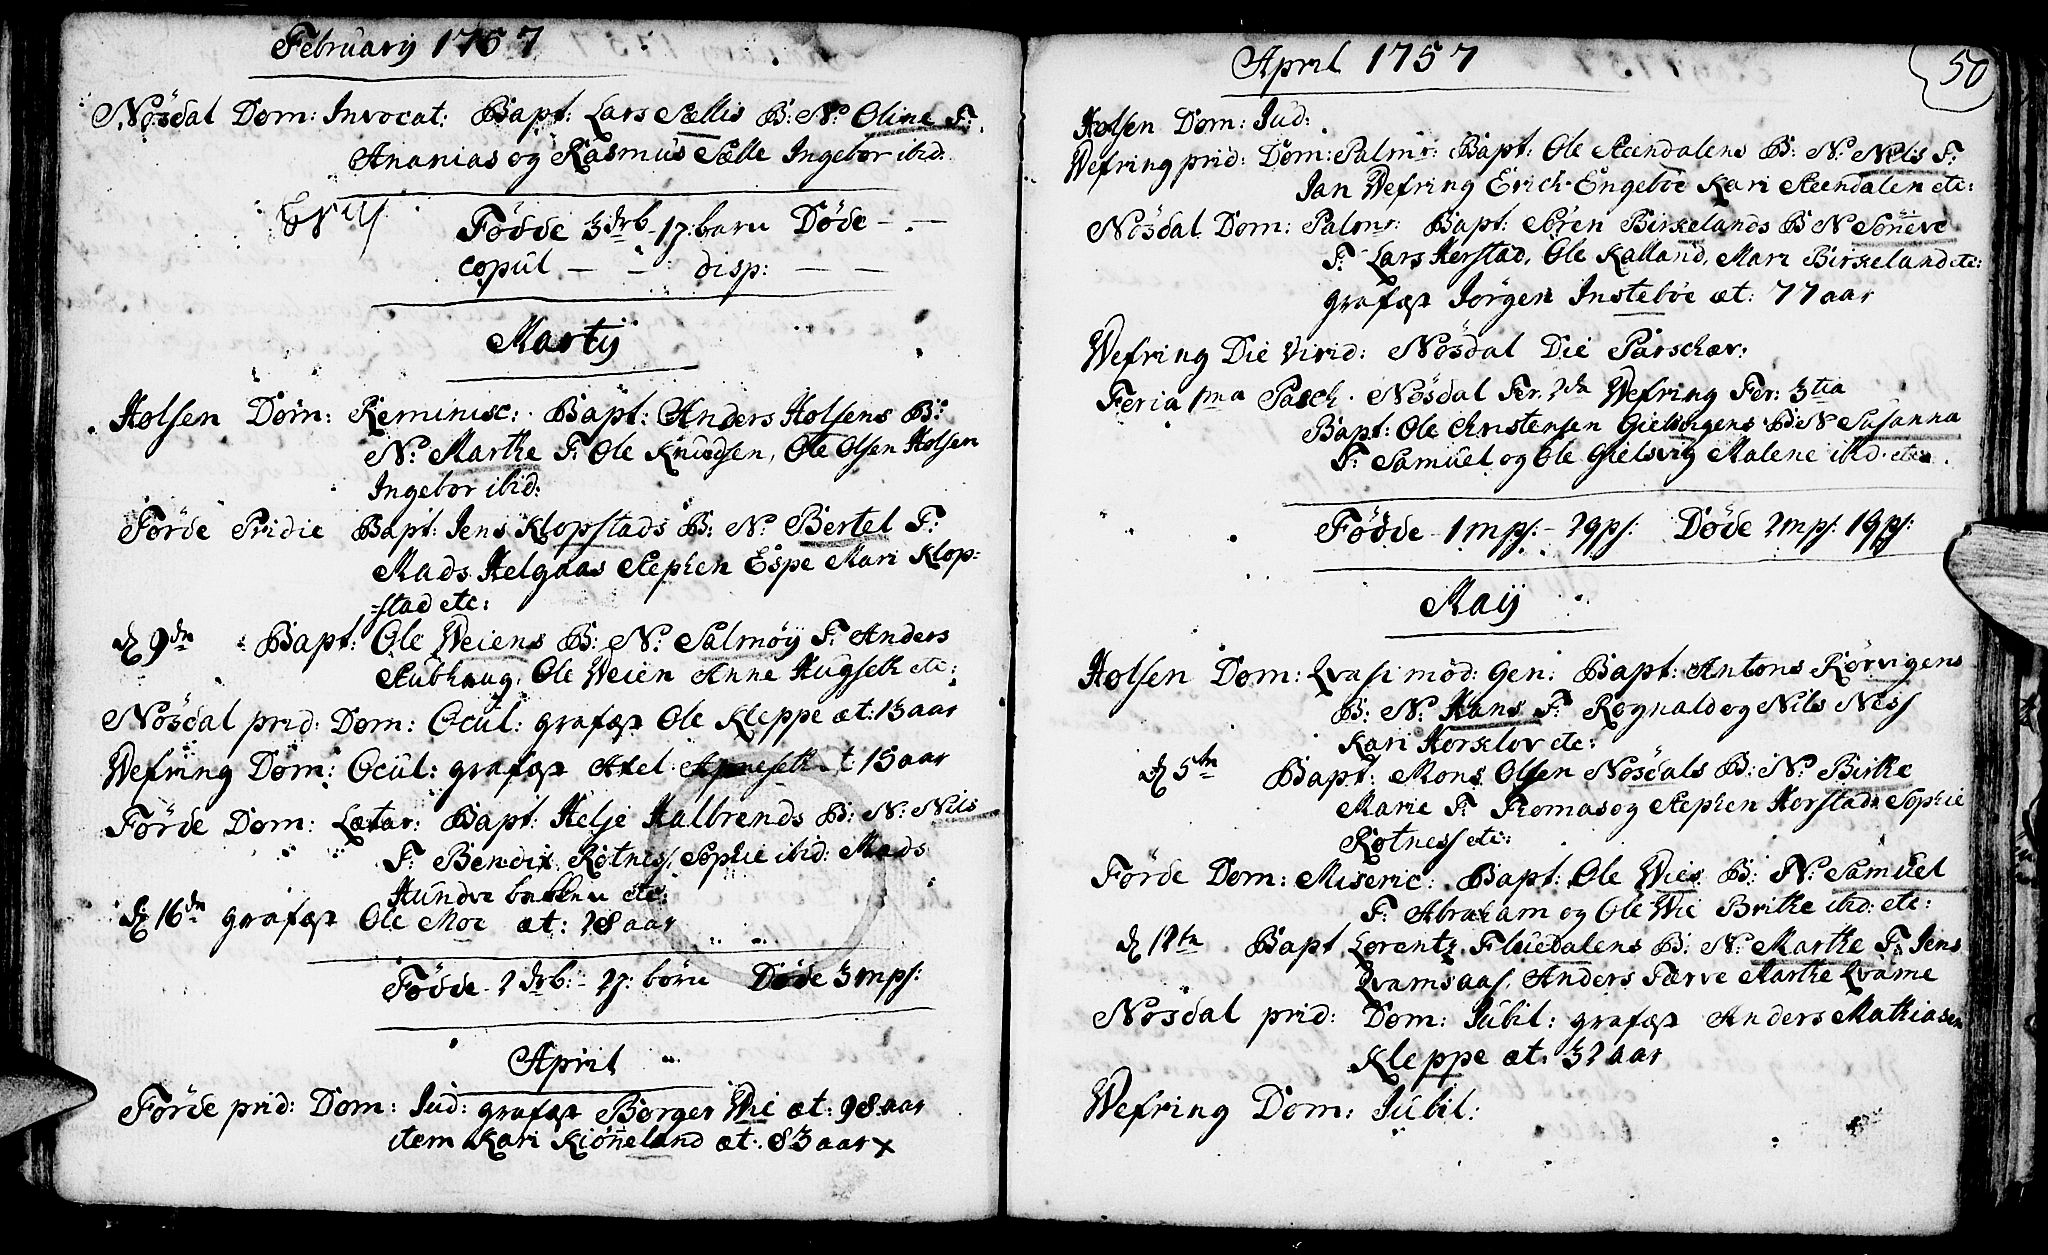 Februarij 1757
Nösdal Dom: Invocat: Bapt: Lars Sællis B: N: Oline F:
Ananias og Rasmus Sælle Ingebor ibid:
Födde 3 drb - 1 p: barn Döde - . -
copul - - disp: - -
Martij
Holsen Dom: Reminisc: Bapt: Anders Holsens B:
N: Marthe F: Ole Knudsen, Ole Olsen Holsen
Ingebor ibid:
Förde Pridie Bapt: Jens Klopstads B: N: Bertel F:
Mads Helgaas Stephen Espe Mari Klop=
=stad etc:
d 9dn Bapt: Ole Weiens B: N: Salmöy F: Anders
Stubhaug, Ole Weien Anne Hugseth etc:
Nösdal prid: Dom: Ocul: grafæst Ole Kleppe æt: 13 aar
Wefring Dom: Ocul: grafæst Axel 13 aar
Förde Dom: Lætar: Bapt: Helje Halbrends B: N: Nils
F: Bendix Rotness, Sophie ibid: Mads
Hundvebakken etc:
d 16dn grafæst Ole Moe æt: 28 aar
Födde 2 drb: - 2 p: börn Döde 3 mps:
April
Förde prid: Dom: Jud: grafæst Börger Wie æt: 98 aar
item Kari Kiönneland æt: 83 aar x
April 1757
50
Holsen Dom: Jud:
Wefring prid: Dom: Palmr: Bapt: Ole Steendalens B: N: Nils F:
Jan Wefring Erich Engeböe Kari Steendalen etc:
Nösdal Dom: Palmr: Bapt: Sören Birkelands B N Sönneve
F: Lars Herstad, Ole Kalland, Mari Birkeland etc:
grafæst Jörgen Insteböe æt: 77 aar
Wefring Die Virid: Nösdal Die Parschæv:
Feria 1ma Pasch. Nösdal Fer. 2da Wefring Fer: 3tia
Bapt: Ole Christensen Gielsvigens B N Susanna
F: Samuel og Ole Gielsvig Malene ibid: etc:
Födde 1 mps: - 2 qps: Döde 2 mps: 1 qps:
Maij
Holsen Dom: Qvasimod: Gen: Bapt: Antons Rörvigens
B: N: Hans F: Rognald og Nils Ness
Kari Horselov etc:
d 5tn Bapt: Mons Olsen Nösdals B: N: Birthe
Marie F: Thomas og Stephen Horstad Sophie
Rotness etc:
Förde Dom: Miseric: Bapt: Ole Wies B: N: Samuel
F: Abraham og Ole Wie Brithe ibid: etc:
d 12tn Bapt Lorentz Fluedalens B: N: Marthe F: Jens
Qvamsaas, Anders Færve Marthe Qvame
Nösdal prid: Dom: Jubil: grafæst Anders Mathiasen
Kleppe æt: 32 aar
Wefring Dom: Jubil: